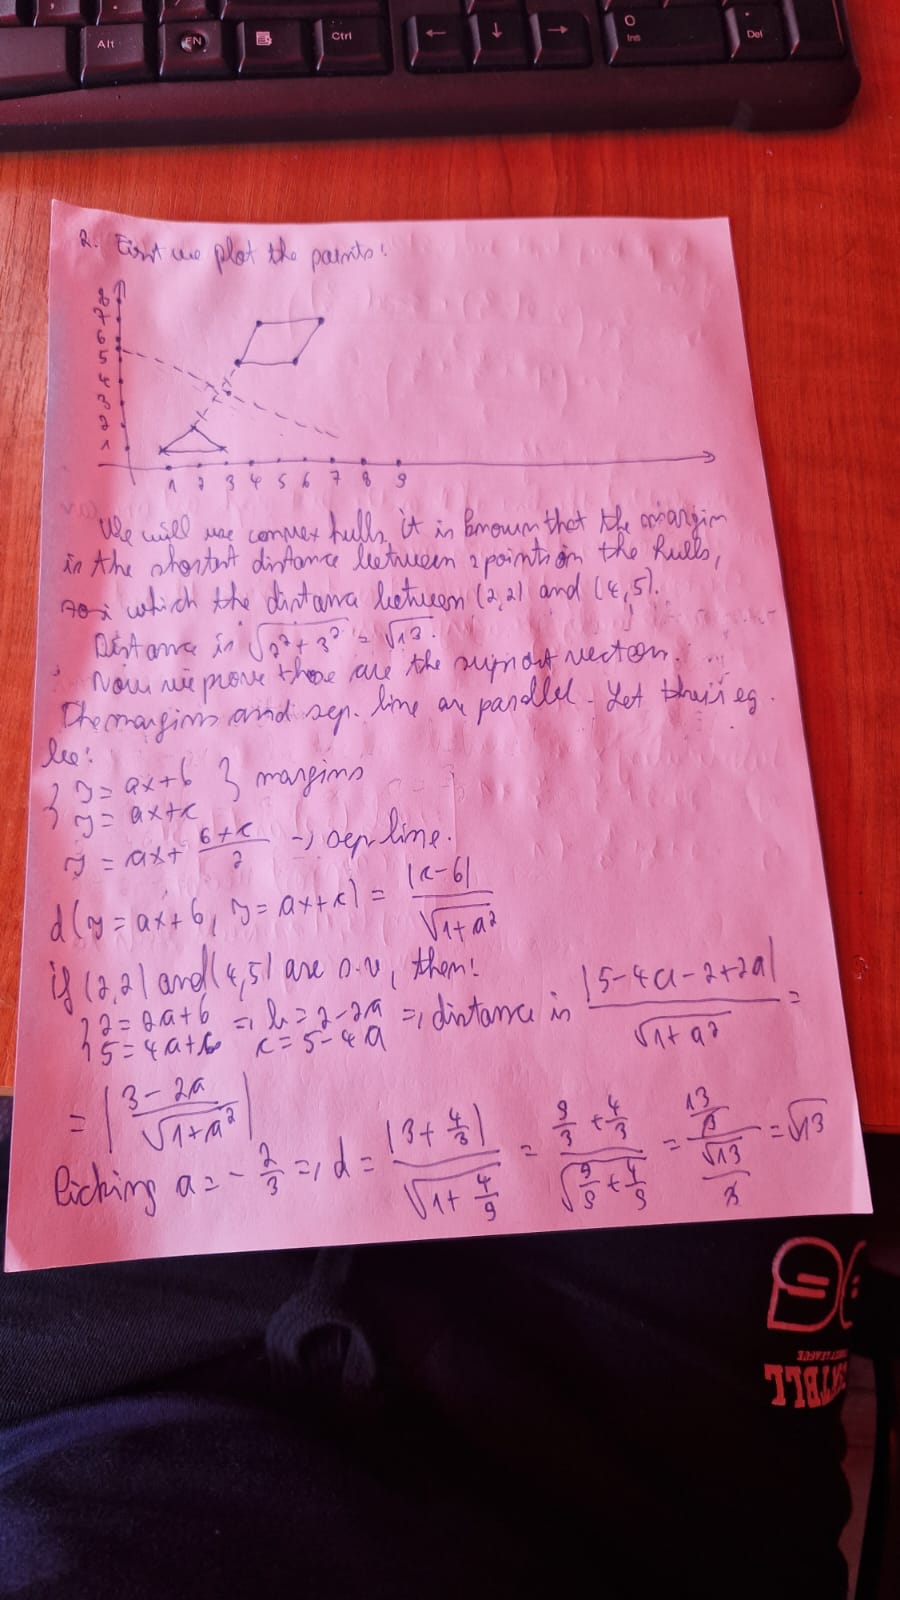 Alt
EN
Ctrl
←
↓
→
0
Ins
.
Del
2. First we plot the points:
8
7
6
5
4
3
2
1
1 2 3 4 5 6 7 8 9
We will use convex hulls, it is known that the margin
is the shortest distance between 2 points on the hulls,
which the distance between (2,2) and (4,5).
Distance is √(2²+3²) = √13.
Now we prove those are the support vectors.
The margins and sep. line are parallel. Let their eq.
be:
{ y = ax+b } margins
y = ax+c
y = ax + (b+c)/2 -> sep line.
d(y=ax+b, y=ax+c) = |c-b|/√(1+a²)
if (2,2) and (4,5) are s.v, then:
{ 2=2a+b => b=2-2a => distance is |5-4a-2+2a|/√(1+a²) =
5=4a+c c=5-4a
= |(3-2a)/√(1+a²)|
Picking a=-2/3 => d = |3+4/3|/√(1+4/9) = (9/3+4/3)/√(9/9+4/9) = (13/3)/(√13/3) = √13